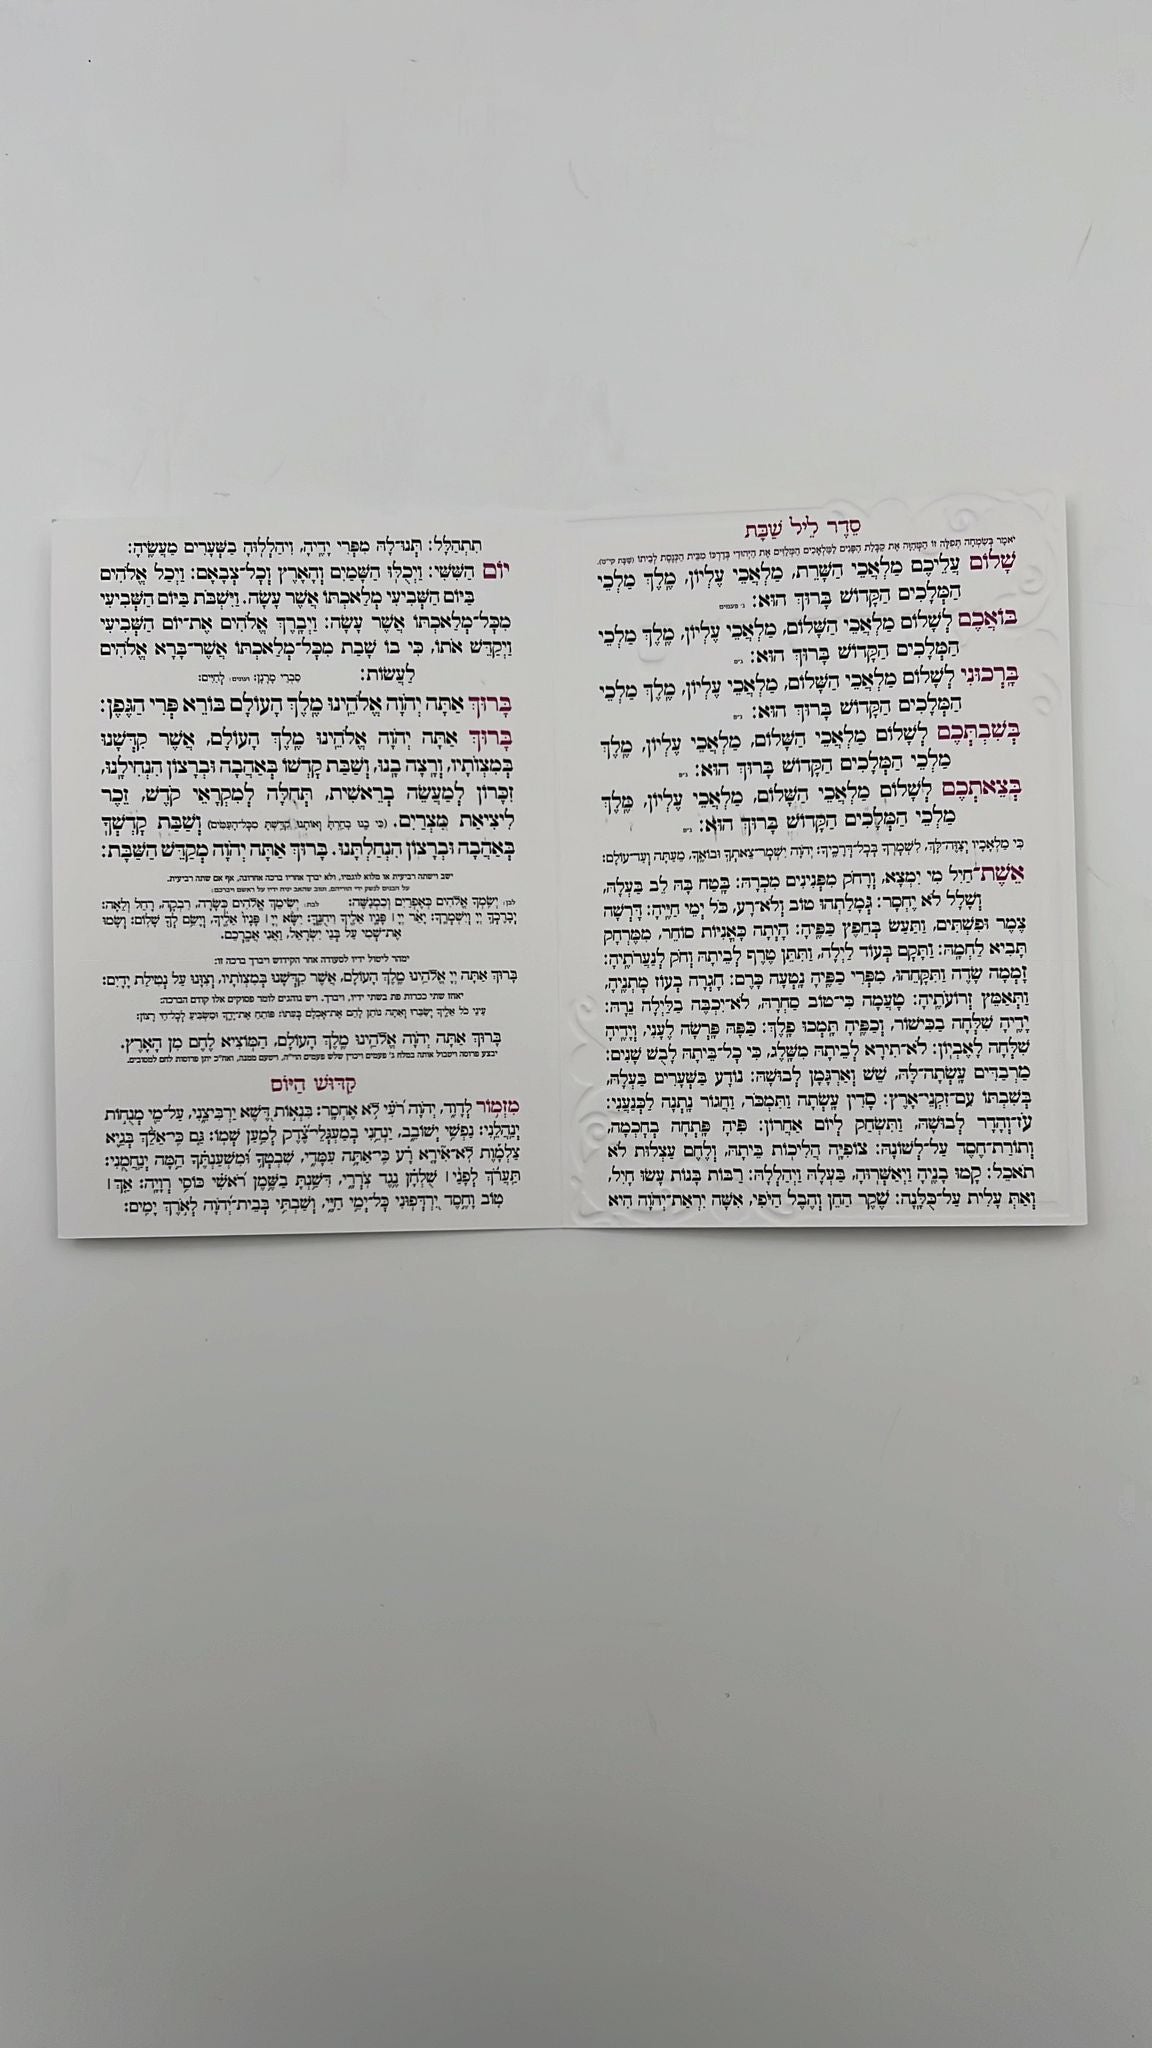 סֵדֶר לֵיל שַׁבָּת
יאמר בשמחה תפלה זו המהוה את קבלת הפנים למלאכים המלוים את היהודי בדרכו מבית הכנסת לביתו (שבת קי״ט).
שָׁלוֹם עֲלֵיכֶם מַלְאֲכֵי הַשָּׁרֵת, מַלְאֲכֵי עֶלְיוֹן, מֶלֶךְ מַלְכֵי
הַמְּלָכִים הַקָּדוֹשׁ בָּרוּךְ הוּא: ג׳ פעמים
בּוֹאֲכֶם לְשָׁלוֹם מַלְאֲכֵי הַשָּׁלוֹם, מַלְאֲכֵי עֶלְיוֹן, מֶלֶךְ מַלְכֵי
הַמְּלָכִים הַקָּדוֹשׁ בָּרוּךְ הוּא: ג״פ
בָּרְכוּנִי לְשָׁלוֹם מַלְאֲכֵי הַשָּׁלוֹם, מַלְאֲכֵי עֶלְיוֹן, מֶלֶךְ מַלְכֵי
הַמְּלָכִים הַקָּדוֹשׁ בָּרוּךְ הוּא: ג״פ
בְּשִׁבְתְּכֶם לְשָׁלוֹם מַלְאֲכֵי הַשָּׁלוֹם, מַלְאֲכֵי עֶלְיוֹן, מֶלֶךְ
מַלְכֵי הַמְּלָכִים הַקָּדוֹשׁ בָּרוּךְ הוּא: ג״פ
בְּצֵאתְכֶם לְשָׁלוֹם מַלְאֲכֵי הַשָּׁלוֹם, מַלְאֲכֵי עֶלְיוֹן, מֶלֶךְ
מַלְכֵי הַמְּלָכִים הַקָּדוֹשׁ בָּרוּךְ הוּא: ג״פ
כִּי מַלְאָכָיו יְצַוֶּה־לָּךְ, לִשְׁמָרְךָ בְּכָל־דְּרָכֶיךָ: יְהֹוָה יִשְׁמָר־צֵאתְךָ וּבוֹאֶךָ, מֵעַתָּה וְעַד־עוֹלָם:
אֵשֶׁת־חַיִל מִי יִמְצָא, וְרָחֹק מִפְּנִינִים מִכְרָהּ: בָּטַח בָּהּ לֵב בַּעְלָהּ,
וְשָׁלָל לֹא יֶחְסָר: גְּמָלַתְהוּ טוֹב וְלֹא־רָע, כֹּל יְמֵי חַיֶּיהָ: דָּרְשָׁה
צֶמֶר וּפִשְׁתִּים, וַתַּעַשׂ בְּחֵפֶץ כַּפֶּיהָ: הָיְתָה כָּאֳנִיּוֹת סוֹחֵר, מִמֶּרְחָק
תָּבִיא לַחְמָהּ: וַתָּקָם בְּעוֹד לַיְלָה, וַתִּתֵּן טֶרֶף לְבֵיתָהּ וְחֹק לְנַעֲרֹתֶיהָ:
זָמְמָה שָׂדֶה וַתִּקָּחֵהוּ, מִפְּרִי כַפֶּיהָ נָטְעָה כָּרֶם: חָגְרָה בְעוֹז מָתְנֶיהָ,
וַתְּאַמֵּץ זְרוֹעֹתֶיהָ: טָעֲמָה כִּי־טוֹב סַחְרָהּ, לֹא־יִכְבֶּה בַלַּיְלָה נֵרָהּ:
יָדֶיהָ שִׁלְּחָה בַכִּישׁוֹר, וְכַפֶּיהָ תָּמְכוּ פָלֶךְ: כַּפָּהּ פָּרְשָׂה לֶעָנִי, וְיָדֶיהָ
שִׁלְּחָה לָאֶבְיוֹן: לֹא־תִירָא לְבֵיתָהּ מִשָּׁלֶג, כִּי כָל־בֵּיתָהּ לָבֻשׁ שָׁנִים:
מַרְבַדִּים עָשְׂתָה־לָּהּ, שֵׁשׁ וְאַרְגָּמָן לְבוּשָׁהּ: נוֹדָע בַּשְּׁעָרִים בַּעְלָהּ,
בְּשִׁבְתּוֹ עִם־זִקְנֵי־אָרֶץ: סָדִין עָשְׂתָה וַתִּמְכֹּר, וַחֲגוֹר נָתְנָה לַכְּנַעֲנִי:
עֹז־וְהָדָר לְבוּשָׁהּ, וַתִּשְׂחַק לְיוֹם אַחֲרוֹן: פִּיהָ פָּתְחָה בְחָכְמָה,
וְתוֹרַת־חֶסֶד עַל־לְשׁוֹנָהּ: צוֹפִיָּה הֲלִיכוֹת בֵּיתָהּ, וְלֶחֶם עַצְלוּת לֹא
תֹאכֵל: קָמוּ בָנֶיהָ וַיְאַשְּׁרוּהָ, בַּעְלָהּ וַיְהַלְלָהּ: רַבּוֹת בָּנוֹת עָשׂוּ חָיִל,
וְאַתְּ עָלִית עַל־כֻּלָּנָה: שֶׁקֶר הַחֵן וְהֶבֶל הַיֹּפִי, אִשָּׁה יִרְאַת־יְהֹוָה הִיא
תִתְהַלָּל: תְּנוּ־לָהּ מִפְּרִי יָדֶיהָ, וִיהַלְלוּהָ בַשְּׁעָרִים מַעֲשֶׂיהָ:
יוֹם הַשִּׁשִּׁי: וַיְכֻלּוּ הַשָּׁמַיִם וְהָאָרֶץ וְכָל־צְבָאָם: וַיְכַל אֱלֹהִים
בַּיּוֹם הַשְּׁבִיעִי מְלַאכְתּוֹ אֲשֶׁר עָשָׂה. וַיִּשְׁבֹּת בַּיּוֹם הַשְּׁבִיעִי
מִכָּל־מְלַאכְתּוֹ אֲשֶׁר עָשָׂה: וַיְבָרֶךְ אֱלֹהִים אֶת־יוֹם הַשְּׁבִיעִי
וַיְקַדֵּשׁ אֹתוֹ, כִּי בוֹ שָׁבַת מִכָּל־מְלַאכְתּוֹ אֲשֶׁר־בָּרָא אֱלֹהִים
לַעֲשׂוֹת: סַבְרִי מָרָנָן: ועונים: לְחַיִּים:
בָּרוּךְ אַתָּה יְהֹוָה אֱלֹהֵינוּ מֶלֶךְ הָעוֹלָם בּוֹרֵא פְּרִי הַגֶּפֶן:
בָּרוּךְ אַתָּה יְהֹוָה אֱלֹהֵינוּ מֶלֶךְ הָעוֹלָם, אֲשֶׁר קִדְּשָׁנוּ
בְּמִצְוֹתָיו, וְרָצָה בָנוּ, וְשַׁבַּת קָדְשׁוֹ בְּאַהֲבָה וּבְרָצוֹן הִנְחִילָנוּ,
זִכָּרוֹן לְמַעֲשֵׂה בְרֵאשִׁית, תְּחִלָּה לְמִקְרָאֵי קֹדֶשׁ, זֵכֶר
לִיצִיאַת מִצְרָיִם. (כִּי בָנוּ בָחַרְתָּ וְאוֹתָנוּ קִדַּשְׁתָּ מִכָּל־הָעַמִּים) וְשַׁבַּת קָדְשְׁךָ
בְּאַהֲבָה וּבְרָצוֹן הִנְחַלְתָּנוּ. בָּרוּךְ אַתָּה יְהֹוָה מְקַדֵּשׁ הַשַּׁבָּת:
ישב וישתה רביעית או מלוא לוגמיו, ולא יברך אחריו ברכה אחרונה, אף אם שתה רביעית.
על הבנים לנשק ידי הוריהם, וטוב שהאב יניח ידיו על ראשם ויברכם:
לבן: יְשִׂימְךָ אֱלֹהִים כְּאֶפְרַיִם וְכִמְנַשֶּׁה: לבת: יְשִׂימֵךְ אֱלֹהִים כְּשָׂרָה, רִבְקָה, רָחֵל וְלֵאָה:
יְבָרֶכְךָ יְיָ וְיִשְׁמְרֶךָ: יָאֵר יְיָ ׀ פָּנָיו אֵלֶיךָ וִיחֻנֶּךָּ: יִשָּׂא יְיָ ׀ פָּנָיו אֵלֶיךָ, וְיָשֵׂם לְךָ שָׁלוֹם: וְשָׂמוּ
אֶת־שְׁמִי עַל בְּנֵי יִשְׂרָאֵל, וַאֲנִי אֲבָרְכֵם.
ימהר ליטול ידיו לסעודה אחר הקידוש ויברך ברכה זו:
בָּרוּךְ אַתָּה יְיָ אֱלֹהֵינוּ מֶלֶךְ הָעוֹלָם, אֲשֶׁר קִדְּשָׁנוּ בְּמִצְוֹתָיו, וְצִוָּנוּ עַל נְטִילַת יָדָיִם:
יאחז שתי ככרות פת בשתי ידיו, ויברך. ויש נוהגים לומר פסוקים אלו קודם הברכה:
עֵינֵי כֹל אֵלֶיךָ יְשַׂבֵּרוּ וְאַתָּה נוֹתֵן לָהֶם אֶת־אָכְלָם בְּעִתּוֹ: פּוֹתֵחַ אֶת־יָדֶךָ וּמַשְׂבִּיעַ לְכָל־חַי רָצוֹן:
בָּרוּךְ אַתָּה יְהֹוָה אֱלֹהֵינוּ מֶלֶךְ הָעוֹלָם, הַמּוֹצִיא לֶחֶם מִן הָאָרֶץ.
יבצע פרוסה ויטבול אותה במלח ג׳ פעמים ויכוין שלש פעמים הוי״ה, ויטעם ממנה, ואח״כ יתן פרוסות לחם למסובים.
קִדּוּשׁ הַיּוֹם
מִזְמוֹר לְדָוִד, יְהֹוָה רֹעִי לֹא אֶחְסָר: בִּנְאוֹת דֶּשֶׁא יַרְבִּיצֵנִי, עַל־מֵי מְנֻחוֹת
יְנַהֲלֵנִי: נַפְשִׁי יְשׁוֹבֵב, יַנְחֵנִי בְמַעְגְּלֵי־צֶדֶק לְמַעַן שְׁמוֹ: גַּם כִּי־אֵלֵךְ בְּגֵיא
צַלְמָוֶת לֹא־אִירָא רָע כִּי־אַתָּה עִמָּדִי, שִׁבְטְךָ וּמִשְׁעַנְתֶּךָ הֵמָּה יְנַחֲמֻנִי:
תַּעֲרֹךְ לְפָנַי ׀ שֻׁלְחָן נֶגֶד צֹרְרָי, דִּשַּׁנְתָּ בַשֶּׁמֶן רֹאשִׁי כּוֹסִי רְוָיָה: אַךְ ׀
טוֹב וָחֶסֶד יִרְדְּפוּנִי כָּל־יְמֵי חַיָּי, וְשַׁבְתִּי בְּבֵית־יְהֹוָה לְאֹרֶךְ יָמִים: